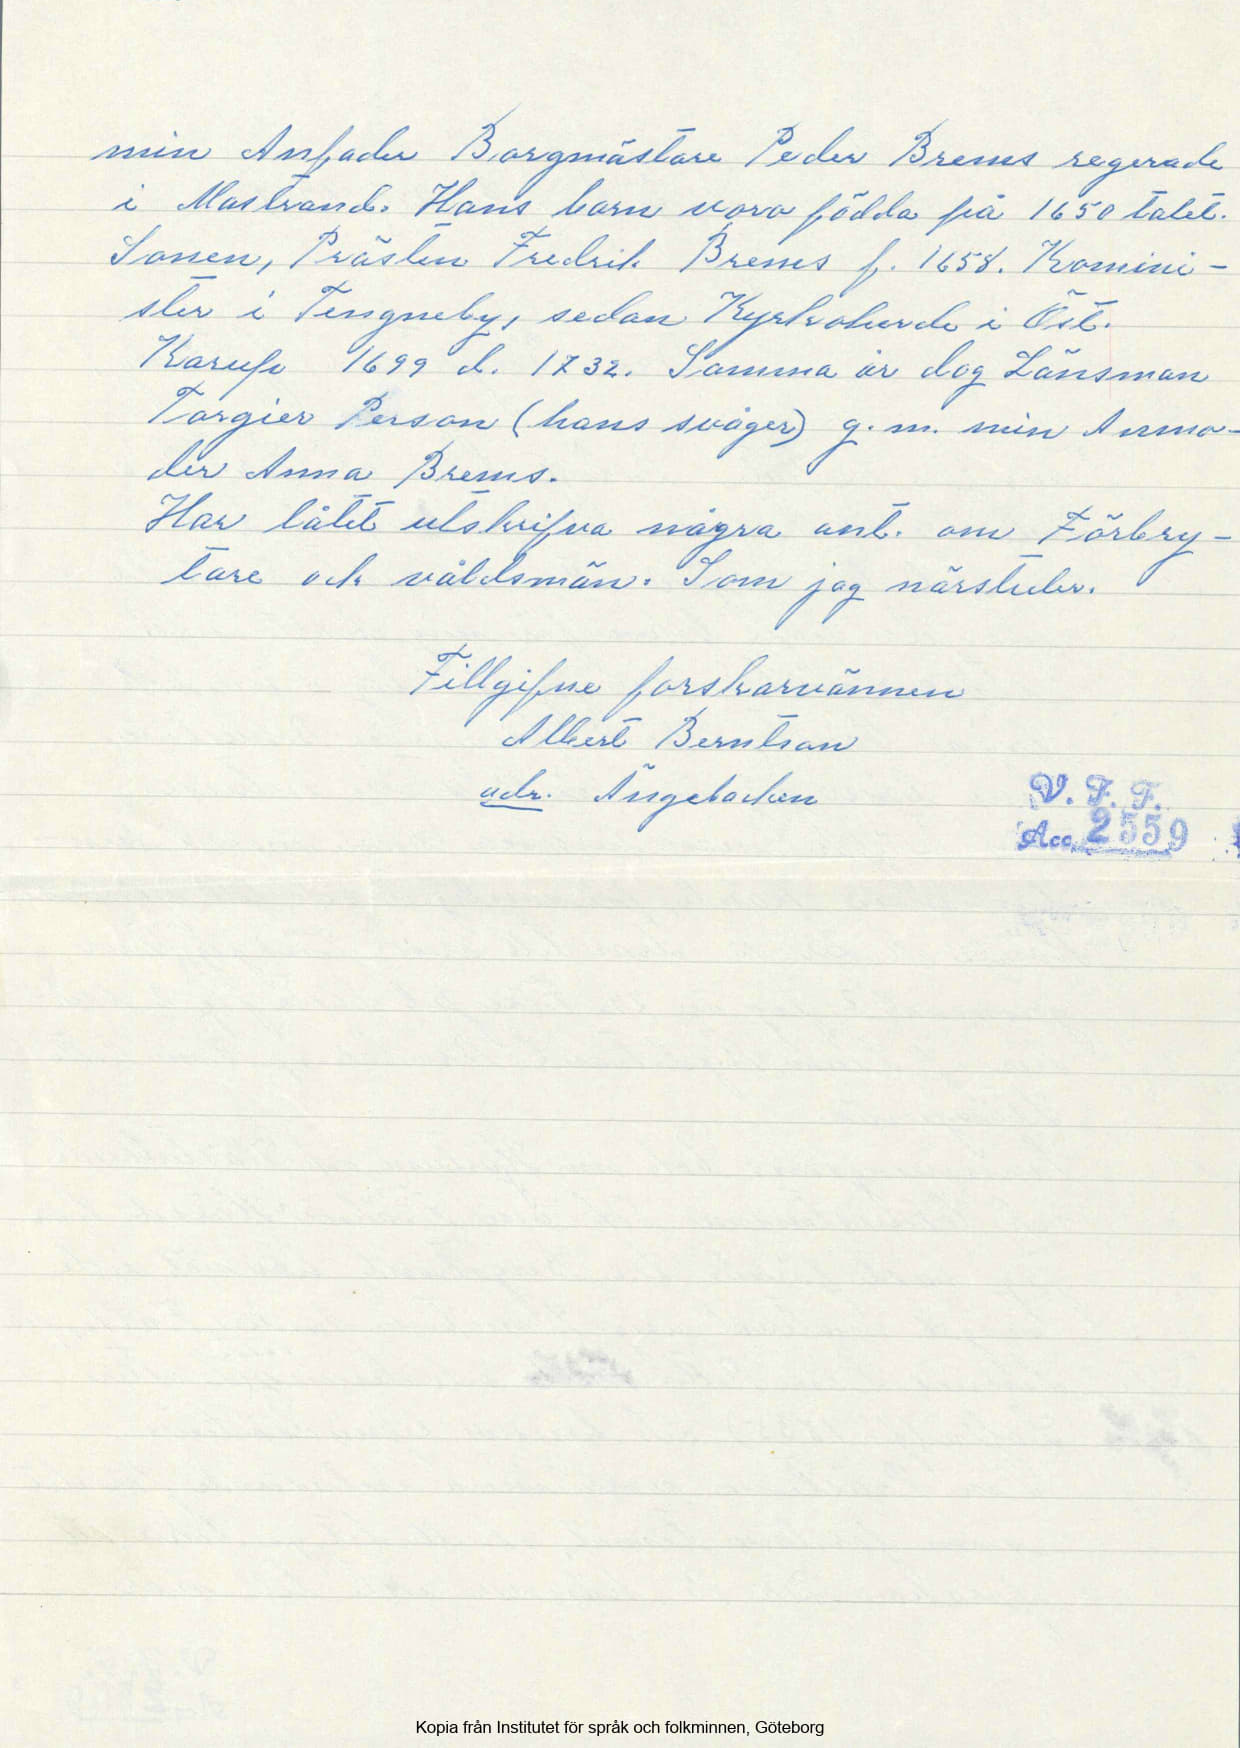 min Anfader Borgmästare Peder Brems regerade
i Mastrand. Hans barn voro födda på 1650 talet.
Sonen, Prästen Fredrik Brems f. 1658. Komini-
ster i Tengneby, sedan Kyrkoherde i Öst.
Karup 1699 d. 1732. Samma år dog Länsman
Torgier Person (hans svåger) g. m. min Anmo-
der Anna Brems.
Har låtit utskrifva några ant. om Förbry-
tare och våldsmän. Som jag närsluter.
Tillgifne forskarvännen
Albert Berntson
adr. Ängebacken
V. F. F.
Acc. 2559
Kopia från Institutet för språk och folkminnen, Göteborg